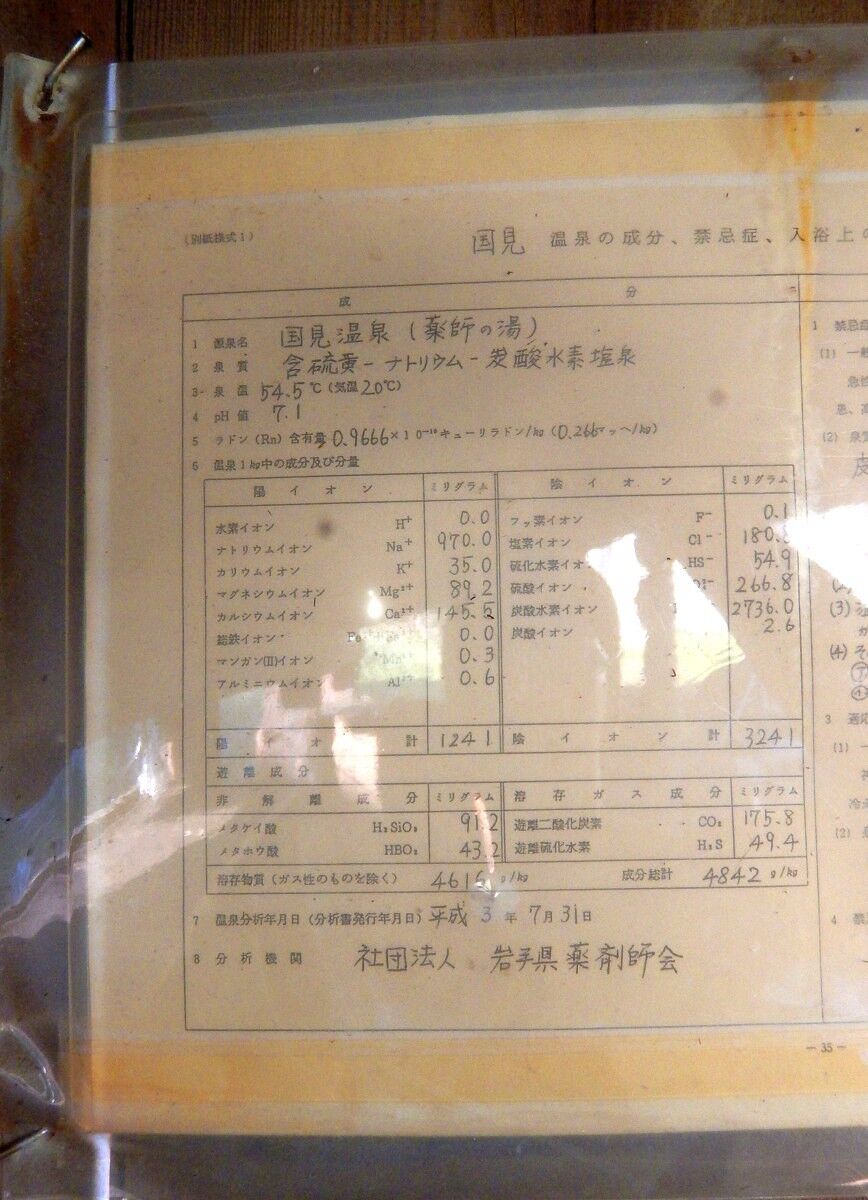 (別紙様式1)
国見 温泉の成分、禁忌症、入浴上の
成分
1 源泉名 国見温泉(薬師の湯)
2 泉質 含硫黄-ナトリウム-炭酸水素塩泉
3 泉温 54.5℃(気温20℃)
4 pH値 7.1
5 ラドン(Rn)含有量 0.9666×10⁻¹⁰キューリラドン/kg(0.266マッヘ/kg)
6 温泉1kg中の成分及び分量
陽イオン ミリグラム 陰イオン ミリグラム
水素イオン H⁺ 0.0 フッ素イオン F⁻ 0.1
ナトリウムイオン Na⁺ 970.0 塩素イオン Cl⁻ 180.8
カリウムイオン K⁺ 35.0 硫化水素イオン HS⁻ 54.9
マグネシウムイオン Mg²⁺ 89.2 硫酸イオン 266.8
カルシウムイオン Ca²⁺ 145.5 炭酸水素イオン 2736.0
総鉄イオン 0.0 炭酸イオン 2.6
マンガン(II)イオン Mn²⁺ 0.3
アルミニウムイオン Al³⁺ 0.6
陽イオン計 1241 陰イオン計 3241
遊離成分
非解離成分 ミリグラム 溶存ガス成分 ミリグラム
メタケイ酸 H₂SiO₃ 91.2 遊離二酸化炭素 CO₂ 175.8
メタホウ酸 HBO₂ 43.2 遊離硫化水素 H₂S 49.4
溶存物質(ガス性のものを除く) 4616 g/kg 成分総計 4842 g/kg
7 温泉分析年月日(分析書発行年月日)平成3年7月31日
8 分析機関 社団法人 岩手県薬剤師会
1 禁忌症
(1) 一般
急性
患、高
(2) 泉質
皮
(3)
(4) そ
㋐
㋑
3 適応
(1) 一
神
冷え
(2)
4 禁
-35-